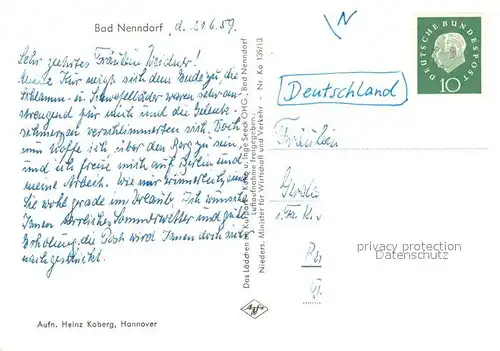 Bad Nenndorf, d. 21.6.59.
Sehr geehrtes Fräulein Weidner!
Meine Kur neigt sich dem Ende zu, die
Schlamm- u. Schwefelbäder waren sehr an-
strengend für mich und die Gelenk-
schmerzen verschlimmerten sich. Doch
nun hoffe ich über den Berg zu sein,
und ich freue mich auf Berlin und
meine Arbeit. Wie mir erinnerlich, sind
Sie wohl grade im Urlaub. Ich wünsche
Ihnen herrliches Sommerwetter und gute
Erholung, die Post wird Ihnen doch sicher
nachgeschickt.
Aufn. Heinz Koberg, Hannover
Das Lädchen im Kurpark - Käte u. Inge Seeck OHG., Bad Nenndorf
Luftaufnahme freigegeben:
Nieders. Minister für Wirtschaft und Verkehr - Nr. Ko 139/13
Agfa
DEUTSCHE BUNDESPOST
10
Deutschland
Fräulein
Gerda
privacy protection
WWW.ANSICHTSKARTEN.DE